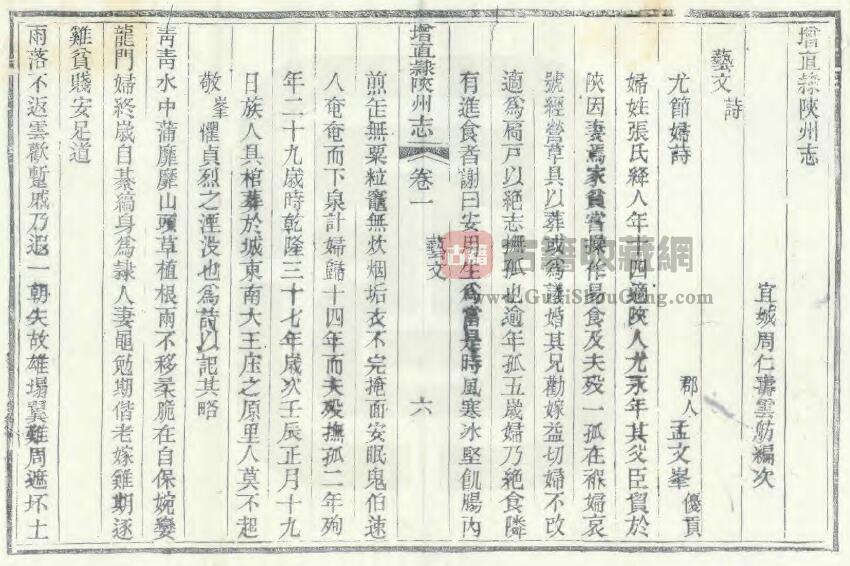 增直隸陝州志
宜城周仁壽雲舫編次
藝文 詩
尤節婦詩 郡人孟文峯優貢
婦姓張氏絳人年十四適陝人尤永年其父臣貿於
陝因妻焉家貧嘗操作易食及夫歿一孤在褓婦哀
號經營草具以葬或為議婚其兄勸嫁益切婦不改
適為槁戸以絕志撫孤也逾年孤五歲婦乃絕食隣
有進食者謝曰安用生為當是時風寒冰堅飢腸內
增直隸陝州志 卷一 藝文 六
煎缶無粟粒竈無炊烟垢衣不完掩面安眠鬼伯速
人奄奄而下泉計婦歸十四年而夫歿撫孤二年殉
年二十九歲時乾隆三十七年歲次壬辰正月十九
日族人具棺葬於城東南大王庄之原里人莫不起
敬峯懼貞烈之湮没也為詩以記其略
靑靑水中蒲靡靡山頭草植根雨不移柔脆在自保婉孌
龍門婦終歲自綦縞身為隸人妻黽勉期偕老嫁雞期逐
雞貧賤安足道
雨落不返雲歡蹔戚乃遐一朝失故雄塌翼難周遮坏土
古籍
古籍收藏網
www.GujiShouCang.com